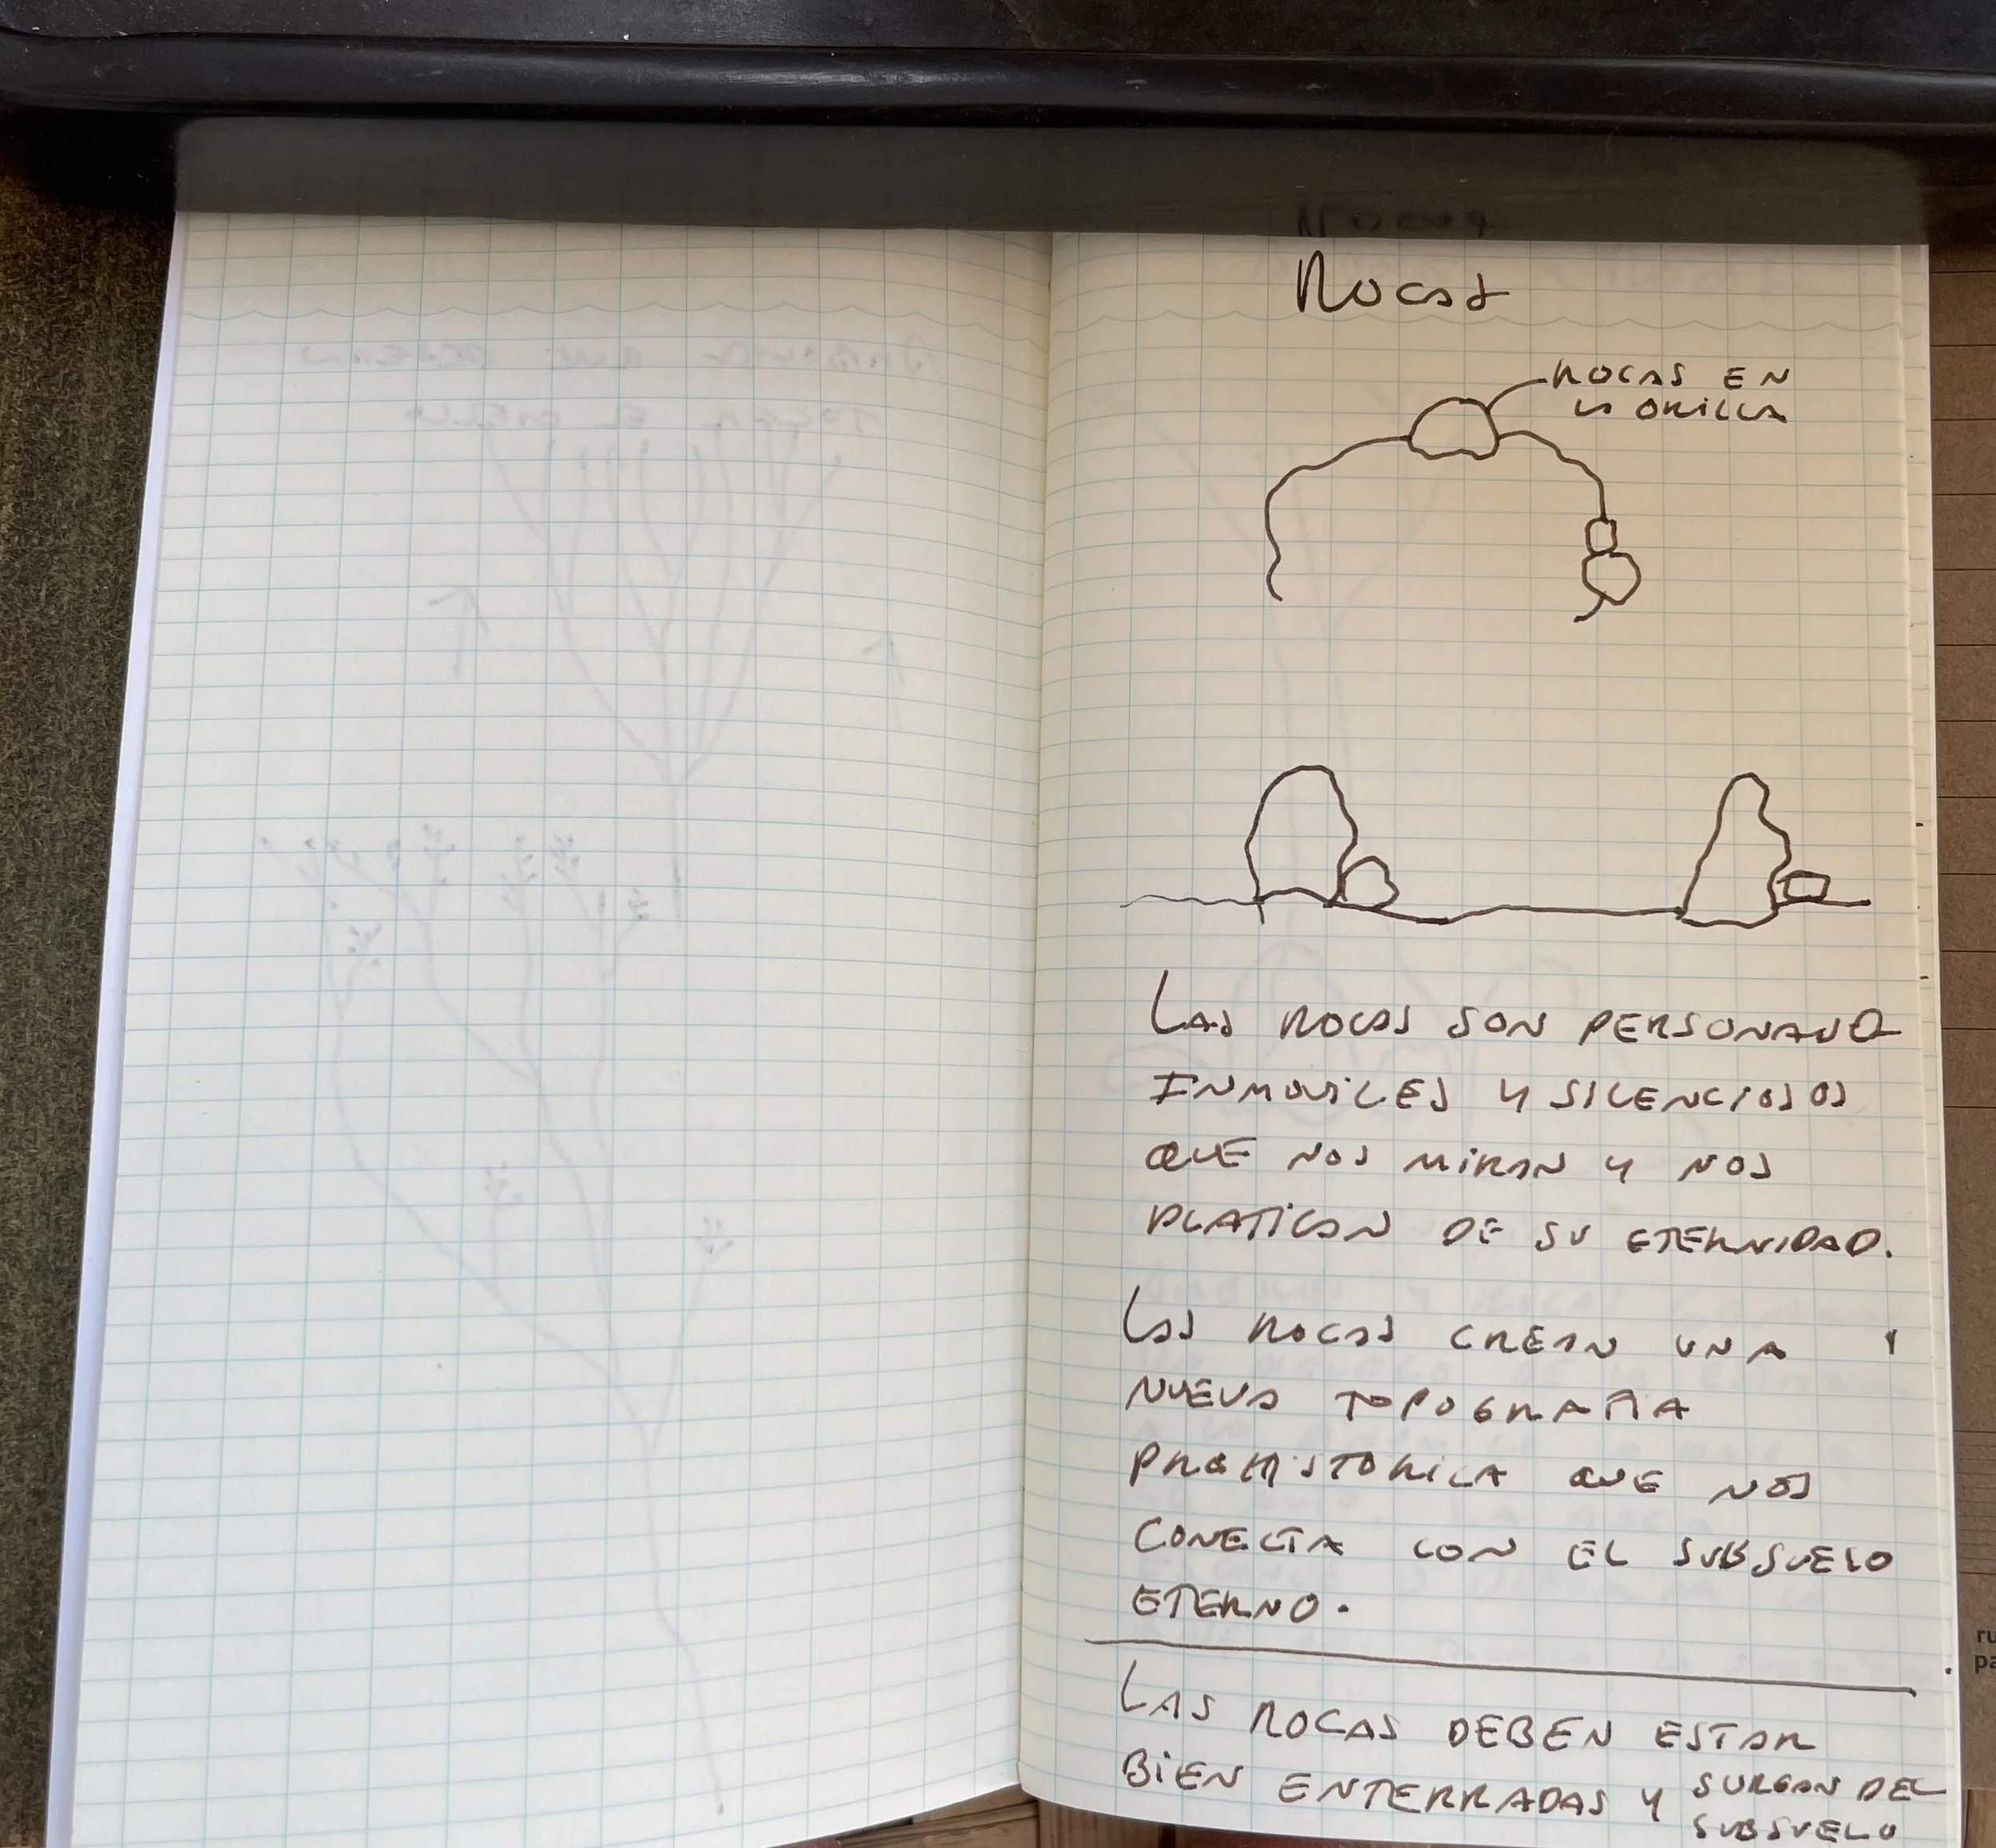 Rocas
ROCAS EN
LA ORILLA
LAS ROCAS SON PERSONAJES
INMOVILES Y SILENCIOSOS
QUE NOS MIRAN Y NOS
PLATICAN DE SU ETERNIDAD.
LAS ROCAS CREAN UNA
NUEVA TOPOGRAFIA
PREHISTORICA QUE NOS
CONECTA CON EL SUBSUELO
ETERNO.
LAS ROCAS DEBEN ESTAR
BIEN ENTERRADAS Y SURGAN DEL
SUBSUELO